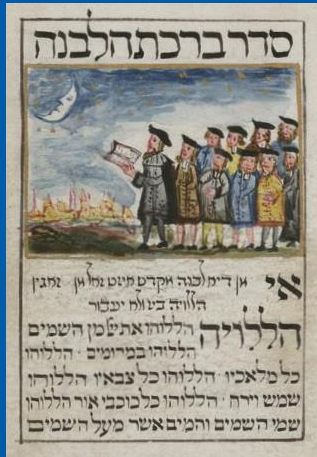 סדר ברכת הלבנה
אי מן דיא לבנה מקדש
הללויה
הללויה הללוהו את יי מן השמים
הללוהו במרומים · הללוהו
כל מלאכיו · הללוהו כל צבאיו הללוהו
שמש וירח · הללוהו כל כוכבי אור הללוהו
שמי השמים והמים אשר מעל השמים